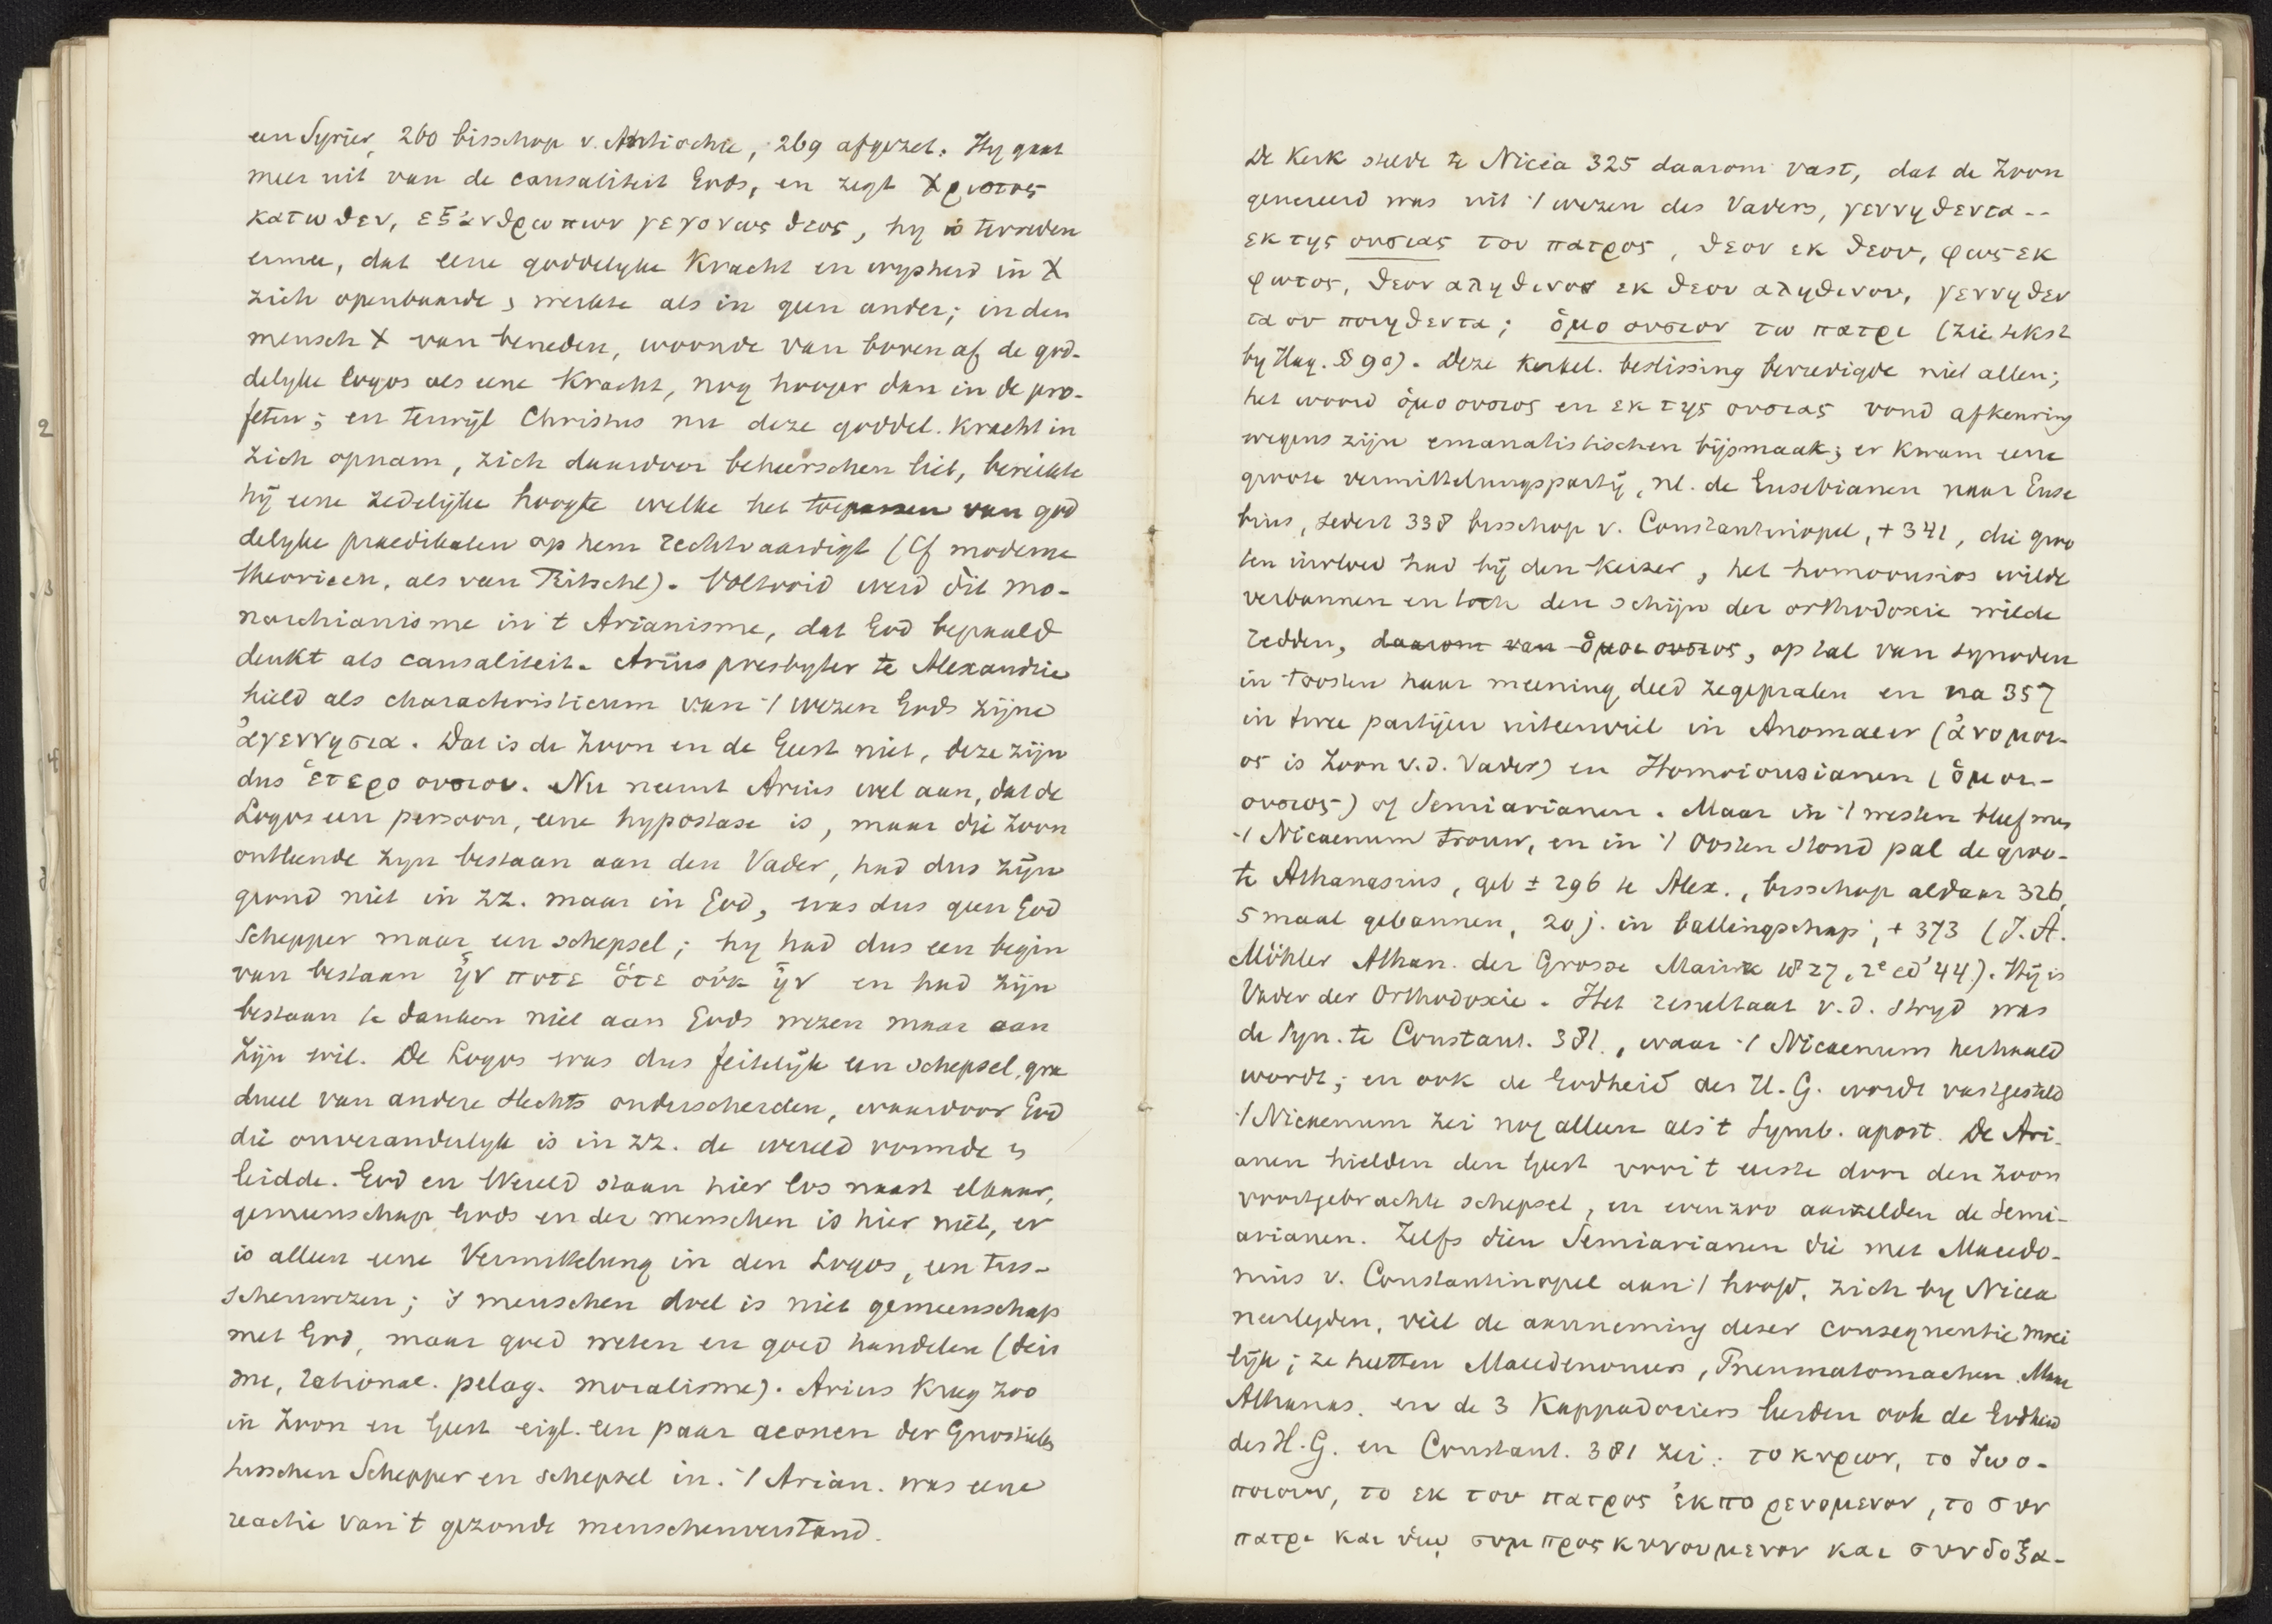 een Syriër, 260 bisschop v. Antiochie, 269 afgezet. Hy gaat
meer uit van de causaliteit Gods, en zegt Χριστος
κατωθεν, εξ ἀνθρωπων γεγονως θεος, hy is tevreden
ermee, dat eene goddelyke Kracht en wysheid in X
zich openbaarde & werkte als in geen ander; in den
mensch X van beneden, woonde van boven af de god-
delyke logos als eene Kracht, nog hooger dan in de pro-
feten; en terwijl Christus nu deze goddel. Kracht in
zich opnam, zich daardoor beheerschen liet, bereikte
hij eene zedelijke hoogte welke het toepassen van god
delyke praedikaten op hem rechtvaardigt (Cf moderne
theorieen, als van Ritschl). Voltooid werd dit mo-
narchianisme in 't Arianisme, dat God bepaald
denkt als causaliteit. Arius presbyter te Alexandrie
hield als characteristicum van 't wezen Gods zijne
ἀγεννησια. Dat is de Zoon en de Geest niet, deze zijn
dus ἑτερο ουσιοι. Nu neemt Arius wel aan, dat de
Logos een persoon, eene hypostase is, maar die Zoon
ontleende zyn bestaan aan den Vader, had dus zijn
grond niet in zz. maar in God, was dus geen God
Schepper maar een schepsel; hy had dus een begin
van bestaan ἦν ποτε ὅτε οὐκ ἦν en had zijn
bestaan te danken niet aan Gods wezen maar aan
Zijn wil. De Logos was dus feitelijk een schepsel, gra
dueel van andere slechts onderscheiden, waardoor God
die onveranderlyk is in zz. de wereld vormde &
leidde. God en Wereld staan hier los naast elkaar,
gemeenschap Gods en der menschen is hier niet, er
is alleen eene Vermittelung in den Logos, een tus-
schenwezen; 's menschen doel is niet gemeenschap
met God, maar goed weten en goed handelen (deis
me, rational. pelag. moralisme). Arius kreeg zoo
in Zoon en Geest eigl. een paar aeonen der Gnostieken
tusschen Schepper en schepsel in. 't Arian. was eene
reactie van 't gezonde menschenverstand.
De Kerk stelde te Nicéa 325 daarom vast, dat de Zoon
genereerd was uit 't wezen des Vaders, γεννηθεντα --
εκ της ουσιας του πατρος, θεον εκ θεου, φως εκ
φωτος, θεον αληθινον εκ θεου αληθινου, γεννηθεν
τα ου ποιηθεντα; ὁμο ουσιον τω πατρι (zie tekst
by Hag. § 90). Deze kerkel. beslissing bevredigde niet allen;
het woord ὁμοουσιος en εκ της ουσιας vond afkeuring
wegens zijn emanatistischen bijsmaak; er kwam eene
groote vermittelungspartij, nl. de Eusebianen naar Euse
bius, sedert 338 bisschop v. Constantinopel, + 341, die groo
ten invloed had bij den keizer, het homoousios wilde
verbannen en toch den schijn der orthodoxie wilde
redden, daarom van ὁμοι ουσιος, op tal van synoden
in 't oosten haar meening deed zegepralen en na 357
in twee partijen uiteenviel in Anomaeer (ἀνομοι-
ος is Zoon v.d. Vader) en Homoiousianen (ὁμοι-
ουσιος) of Semiarianen. Maar in 't westen bleef men
't Nicaenum trouw, en in 't Oosten stond pal de groo-
te Athanasius, geb ± 296 te Alex., bisschop aldaar 326,
5 maal gebannen, 20 j. in ballingschap, + 373 (J. A.
Möhler Athan. der Grosse Mainz 1827, 2e ed '44). Hij is
Vader der Orthodoxie. Het resultaat v.d. stryd was
de Syn. te Constant. 381., waar 't Nicaenum herhaald
wordt; en ook de Godheid des H. G. wordt vastgesteld
't Nicaenum zei nog alleen als 't Symb. apost. De Ari-
anen hielden den Geest voor 't eerste door den Zoon
voortgebrachte schepsel, en evenzoo oordelden de Semi-
arianen. Zelfs dien Semiarianen die met Macedo-
nius v. Constantinopel aan 't hoofd, zich by Nicea
neerleyden, viel de aanneming dezer consequentie moei
lijk; ze heetten Macedonianers, Pneumatomachen. Maar
Athanas. en de 3 Kappadociers leerden ook de Godheid
des H. G. en Constant. 381 zei: το κυριον, το ζωο-
ποιουν, το εκ του πατρος ἐκπορευομενον, το συν
πατρι και υἱῳ συμπροςκυνουμενον και συνδοξα-